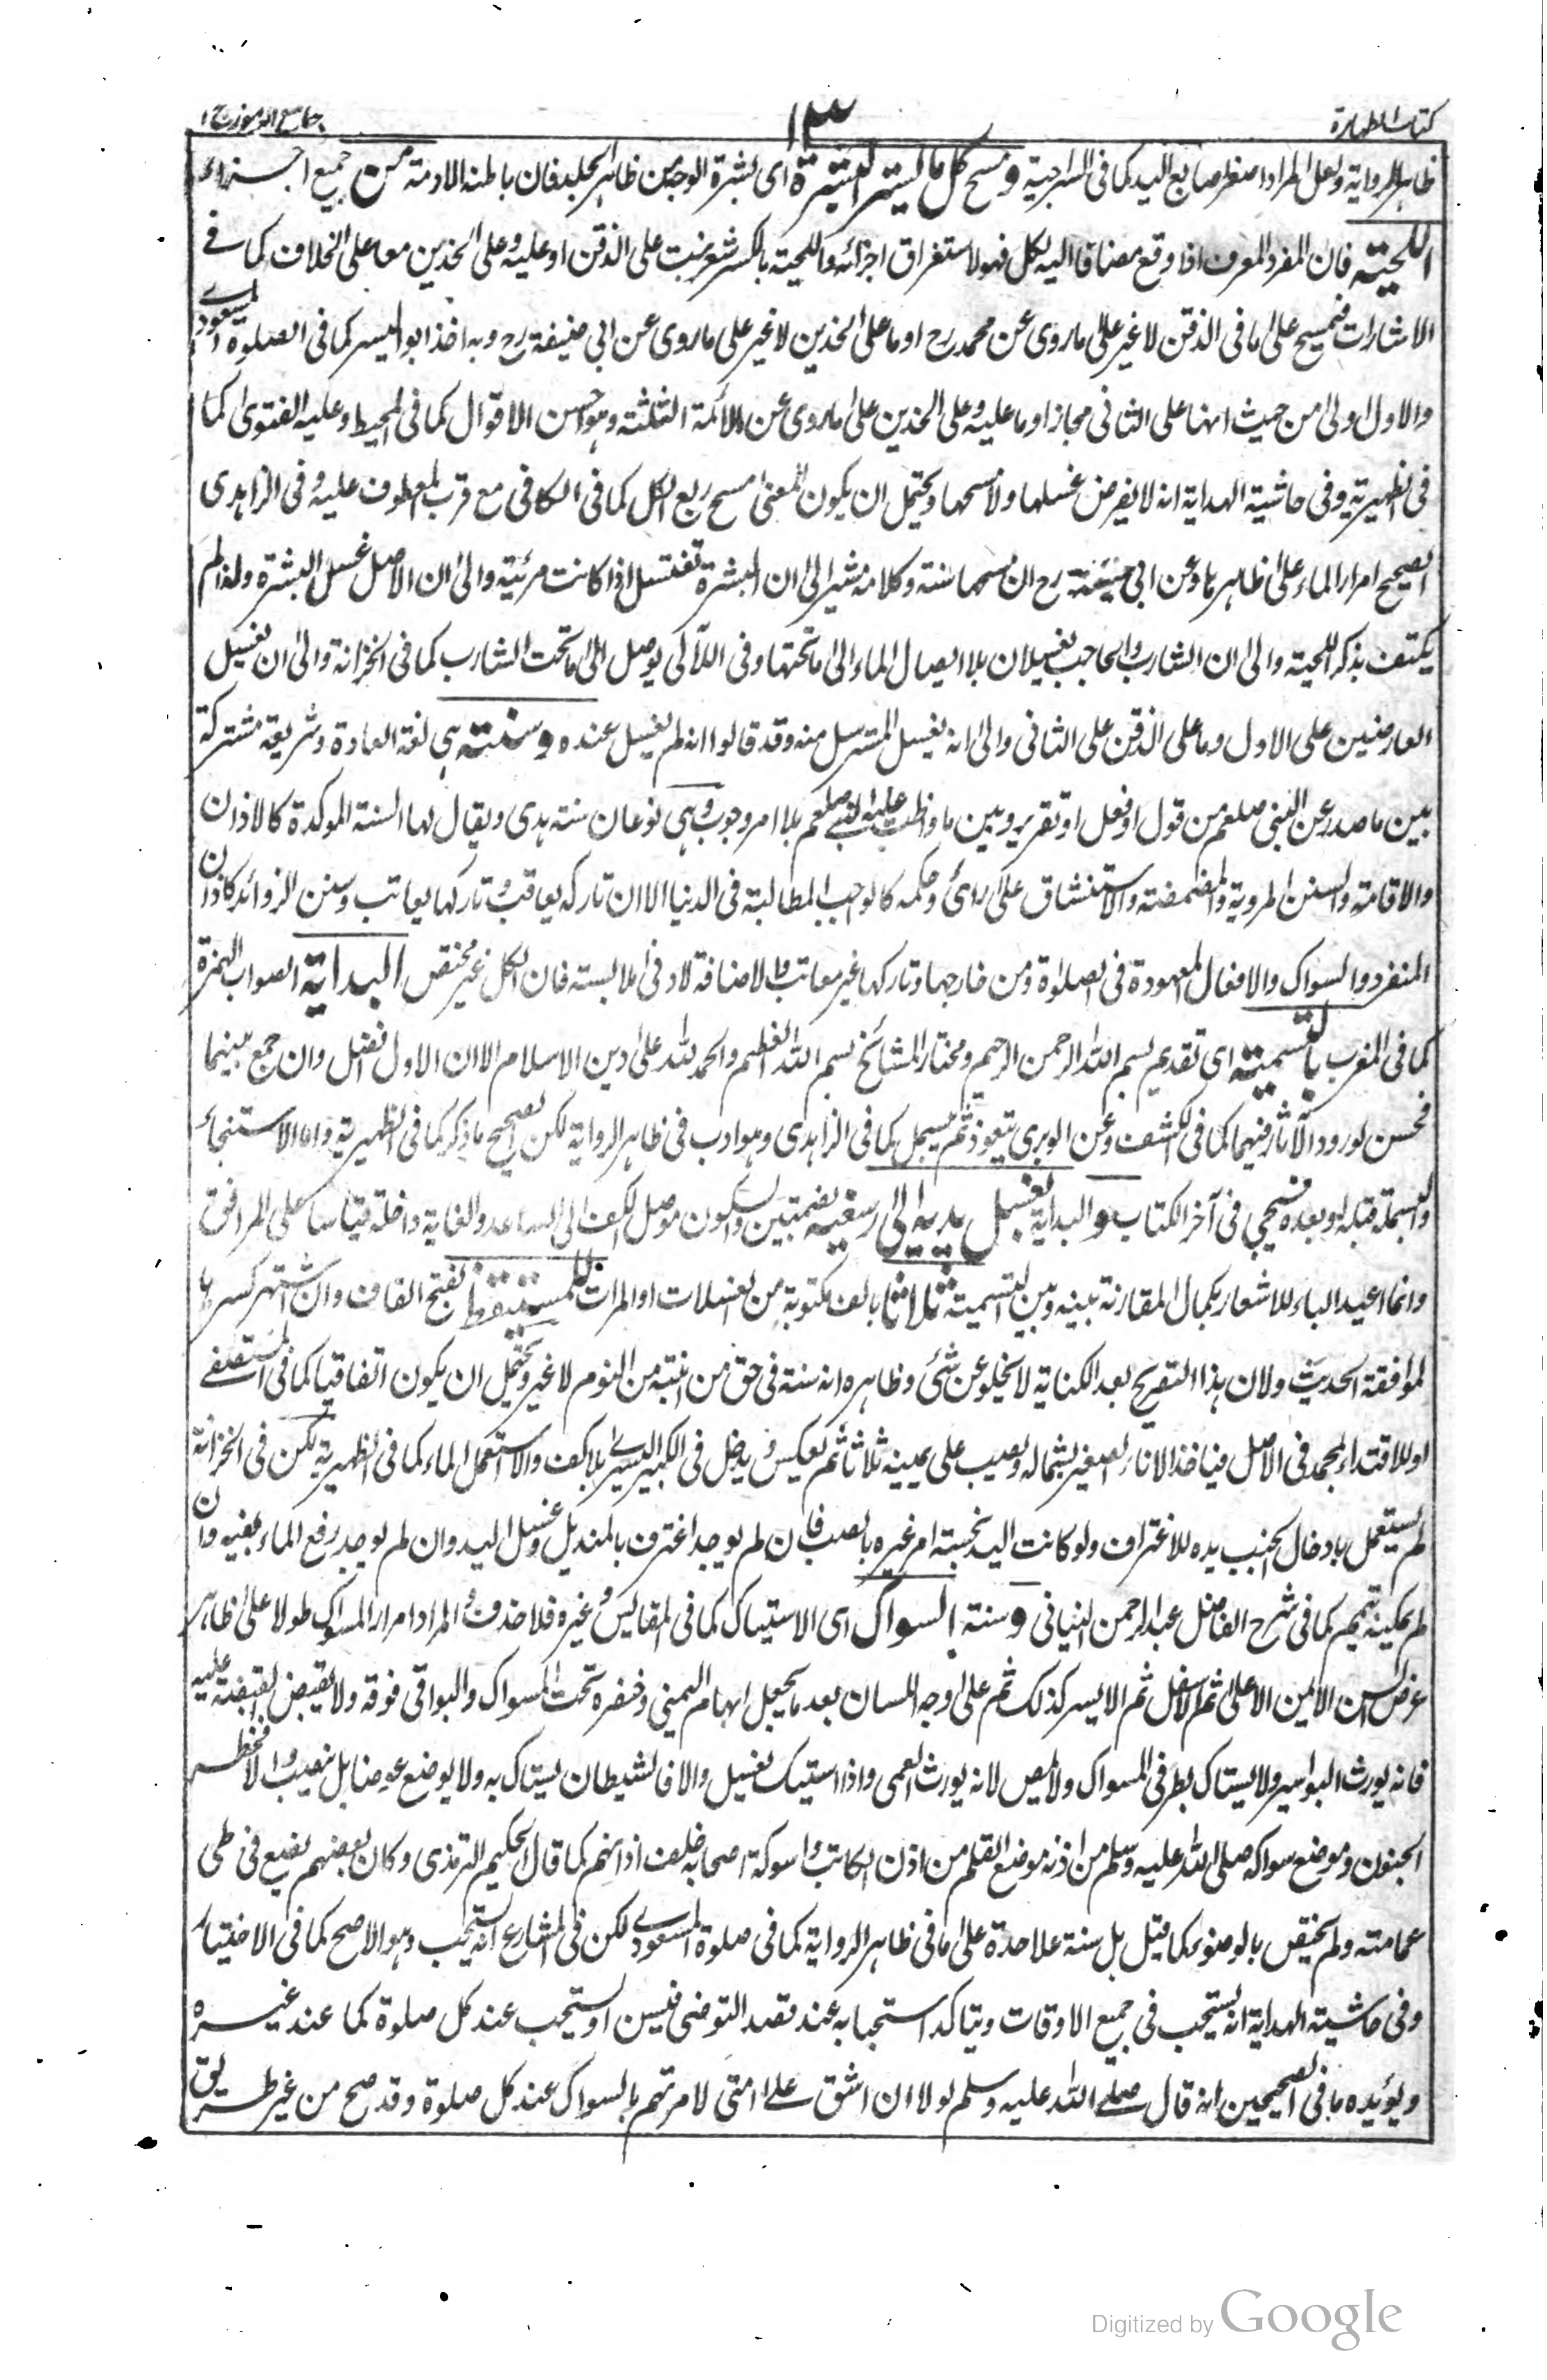 كتاب الطهارة
١٣
جامع الرموز ج ١
ظاهر الرواية ولعل المراد اصغر اصابع اليد كما في السراجية ومسح كل ما يستر البشرة اى بشرة الوجه من ظاهر الجلد فان باطنه الادمة من جميع اجزاء
اللحية فان المفرد المعرف اذا وقع مضافا اليه لكل فهو لاستغراق اجزائه واللحية بالكسر شعر ينبت على الذقن او عليه وعلى الخدين معا على الخلاف كما في
الاشارات فيمسح على ما في الذقن لا غير على ما روى عن محمد رح او ما على الخدين لا غير على ما روى عن ابي حنيفة رح وبه اخذ ابو اليسر كما في الصلوة المسعودي
والاول اولى من حيث انها على الثاني مجاز او ما عليه وعلى الخدين على ما روى عن الأئمة الثلثة وهو احسن الاقوال كما في المحيط وعليه الفتوى كما
في الظهيرية وفي حاشية الهداية انه لا يفرض غسلها ولا مسحها ويحتمل ان يكون المعنى مسح ربع الكل كما في الكافي مع قرب المعطوف عليه وفي الزاهدى
الصحيح امرار الماء على ظاهرها وعن ابي حنيفة رح ان مسحها سنة وكلامه مشير الى ان البشرة تغتسل اذا كانت مرئية والى ان الاصل غسل البشرة ولذا لم
يكتف بذكر اللحية والى ان الشارب والحاجب يغسلان بلا ايصال الماء الى ما تحتها وفي اللآلى يوصل الى ما تحت الشارب كما في الخزانة والى ان يغسل
العارضين على الاول وما على الذقن على الثاني والى انه يغسل المسترسل منه وقد قالوا انه لم يغسل عنده وسنته هي لغة العادة وشريعة مشتركة
بين ما صدر عن النبي صلعم من قول او فعل او تقرير وبين ما واظب عليه النبي صلعم بلا امر وجوب وهي نوعان سنة هدى ويقال لها السنة المؤكدة كالاذان
والاقامة والسنن المروية والمضمضة والاستنشاق على رأى وحكمه كالواجب المطالبة في الدنيا الا ان تاركه يعاقب وتاركها يعاتب وسنن الزوائد كاذان
المنفرد والسواك والافعال المعهودة في الصلوة ومن خارجها وتاركها غير معاتب والاضافة لادنى ملابسة فان الكل غير مختص البداية الصواب الهمزة
كما في المغرب بالتسمية اى تقديم بسم الله الرحمن الرحيم ومختار المشائخ بسم الله العظيم والحمد لله على دين الاسلام الا ان الاول افضل وان جمع بينهما
فحسن لورود الآثار فيهما كما في الكشف وعن الوبرى يتعوذ ثم يبسمل كما في الزاهدى وهو ادب في ظاهر الرواية لكن الصحيح ما ذكر كما في الظهيرية واما الاستنجاء
والبسملة قبله وبعده فسيجي في آخر الكتاب والبداية بغسل يديه الى رسغيه بضمتين والسكون موصل الكف الى الساعد والغاية داخلة قياسا على المرافق
وانما اعيد الباء للاشعار بكمال المقارنة بينه وبين التسمية ثلاثا بالف مكتوبة من الغسلات او المرات للمستيقظ بفتح القاف وان اشتهر كسرها
لموافقة الحديث ولان هذا التصريح بعد الكناية لا يخلو عن شئ وظاهره انه سنة في حق من انتبه من النوم لا غير ويحتمل ان يكون اتفاقيا كما في المستصفى
او للاقتداء بمحمد في الاصل فياخذ الاناء الصغير بشماله ويصب على يمينه ثلاثا ثم يعكس ويدخل في الكبير اليسرى بلا كف والا استعمل الماء كما في الظهيرية لكن في الخزانة
لم يستعمل بادخال الجنب يده للاغتراف ولو كانت اليد نجسة امر غيره بالصب فان لم يوجد اغترف بالمنديل وغسل اليد وان لم يوجد رفع الماء بفيه وان
لم يمكنه تيمم كما في شرح الفاضل عبد الرحمن وسنة السواك اى الاستياك كما في المقاييس وغيره فلا حذف والمراد امرار المسواك طولا على ظاهر
عرض السن الايمن الاعلى ثم الاسفل ثم الايسر كذلك ثم على وجه اللسان بعد ما يجعل ابهام اليمنى وخنصره تحت المسواك والبواقي فوقه ولا يقبض القبضة عليه
فانه يورث البواسير ولا يستاك بطرفي المسواك ولا يمص لانه يورث العمى واذا استيك يغسل والا فالشيطان يستاك به ولا يوضع عرضا بل نصب والا فخطر
الجنون وموضع سواكه صلى الله عليه وسلم من اذنه موضع القلم من اذن الكاتب واسوكة اصحابه خلف اذانهم كما قال الحكيم الترمذى وكان بعضهم يضع في طى
عمامته ولم يختص بالوضوء كما قيل بل سنة علاحدة على ما في ظاهر الرواية كما في صلوة المسعودى لكن في المشارع انه يستحب وهو الاصح كما في الاختيار
وفي حاشية الهداية انه يستحب في جميع الاوقات ويتاكد استحبابه عند قصد التوضى فيسن او يستحب عند كل صلوة كما عند غيره
ويؤيده ما في الصحيحين انه قال صلى الله عليه وسلم لولا ان اشق على امتى لامرتهم بالسواك عند كل صلوة وقد صح من غير طريق
Digitized by Google